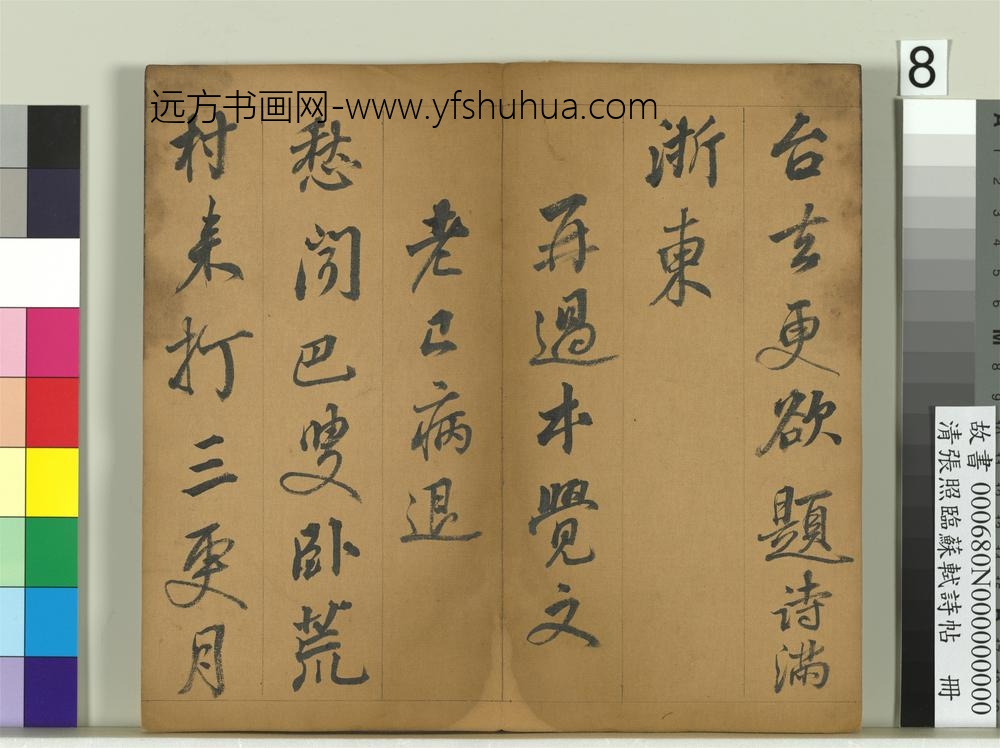 远方书画网-www.yfshuhua.com
8
台去更欲題詩滿
浙東
再過本覺文
老已病退
愁聞巴叟卧荒
村来打三更月
故書 000680N000000000
清張照臨蘇軾詩帖 冊
A
1
2
3
M
8
9